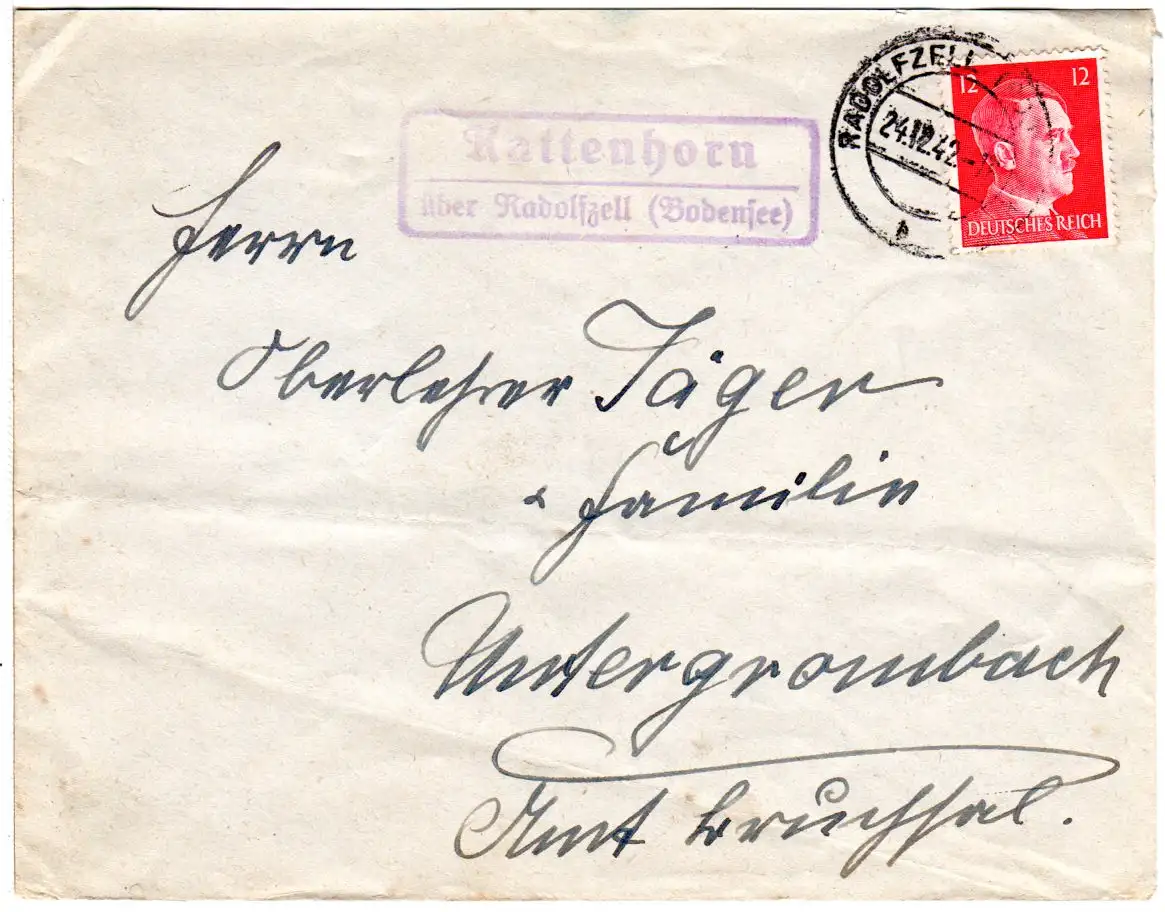 Kattenhorn
über Radolfzell (Bodensee)
RADOLFZELL
24.12.42
b
12 12
DEUTSCHES REICH
Herrn
Oberlehrer Jäger
& Familie
Untergrombach
Amt Bruchsal.